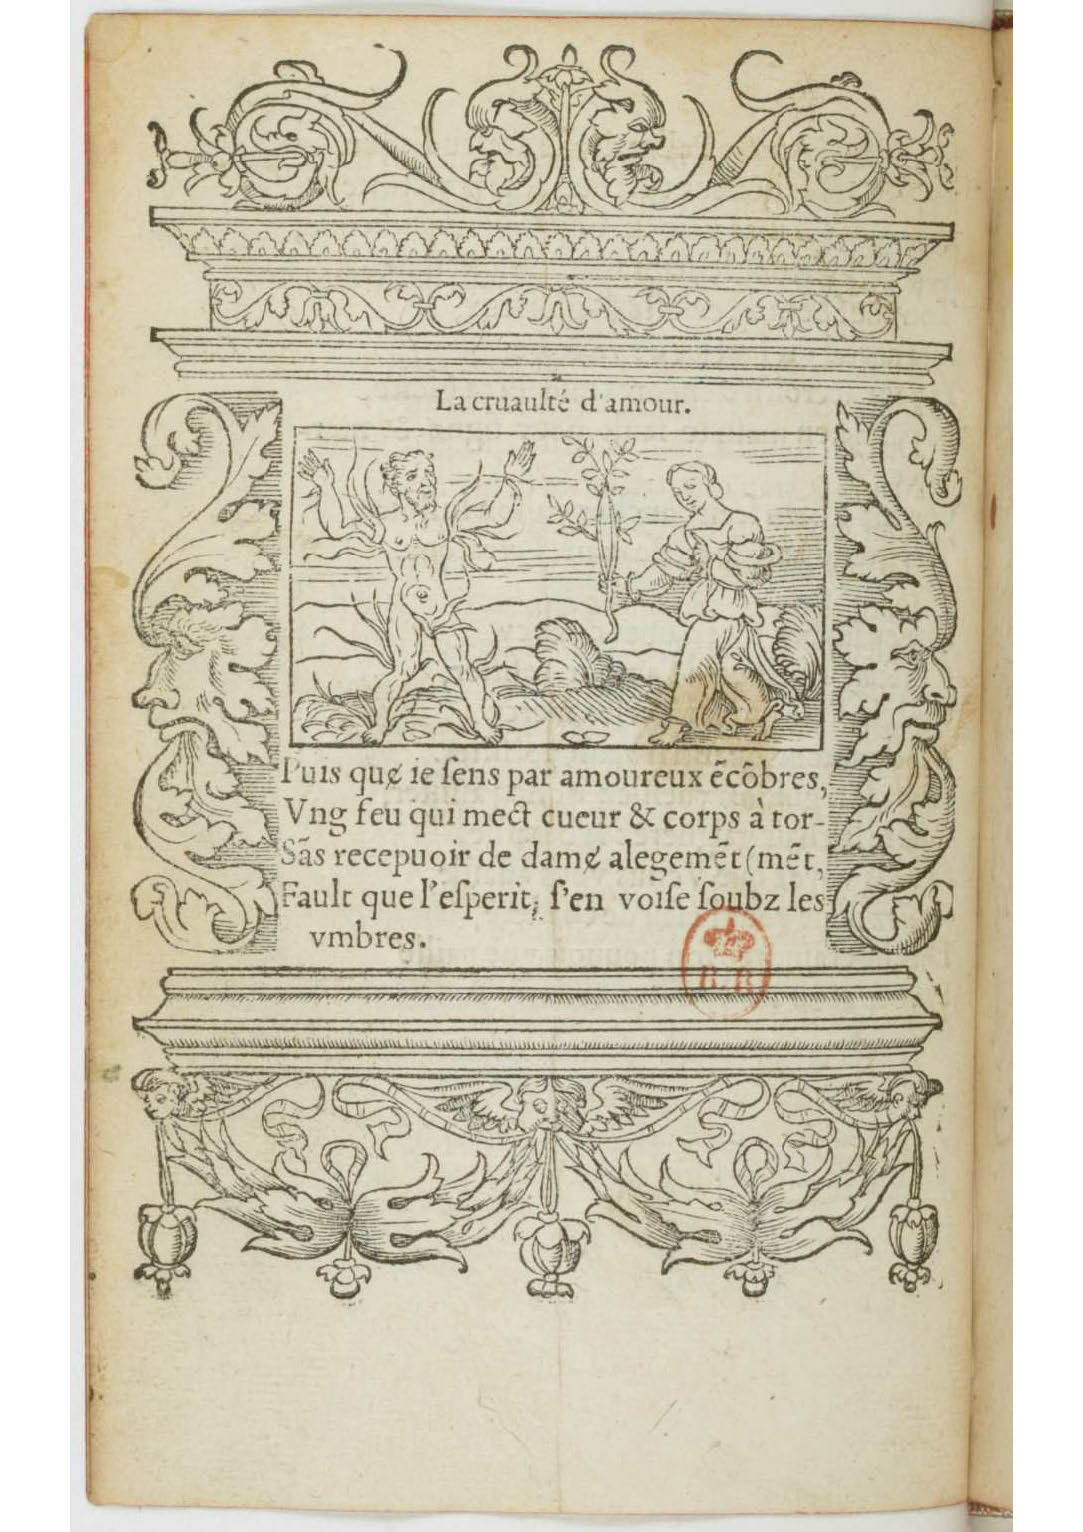 La cruaulté d'amour.
Puis que̸ ie ſens par amoureux ẽcõbres,
Vng feu qui mect cueur & corps à tor-
Sãs recepuoir de dame̸ alegemẽt (mẽt,
Fault que l'eſperit, ſ'en voiſe ſoubz les
vmbres.
B. R